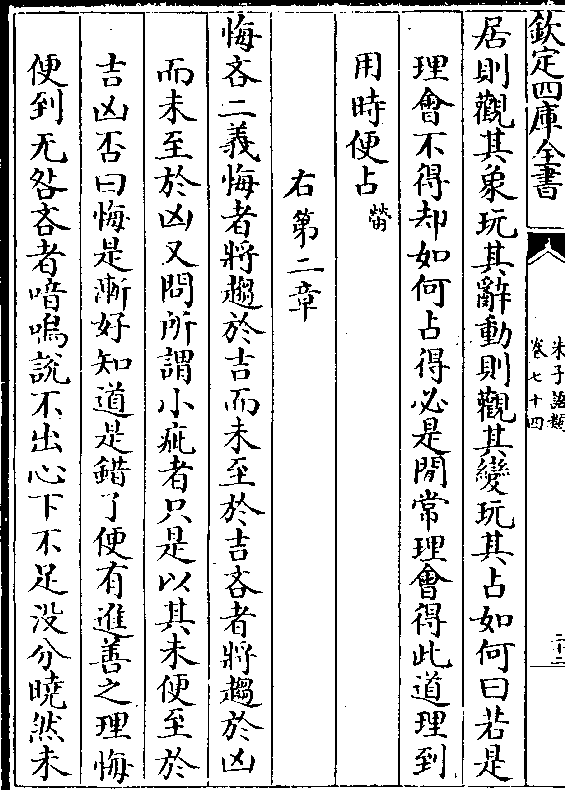 欽定四庫全書
朱子語類
卷七十四
二十二
居則觀其象玩其辭動則觀其變玩其占如何曰若是
理會不得却如何占得必是閒常理會得此道理到
用時便占㽦
右第二章
悔吝二義悔者將趨於吉而未至於吉吝者將趨於凶
而未至於凶又問所謂小疵者只是以其未便至於
吉凶否曰悔是漸好知道是錯了便有進善之理悔
便到无咎吝者喑嗚說不出心下不足没分曉然未